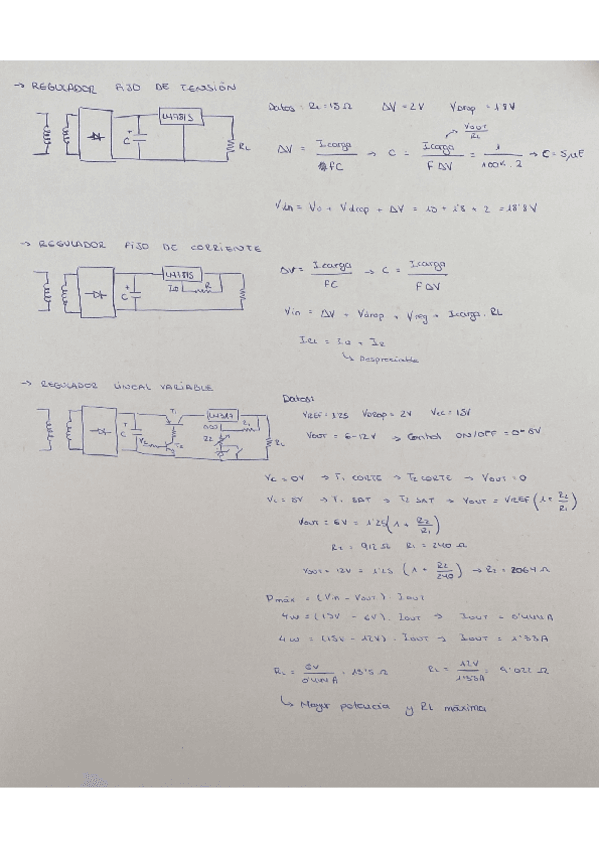 → REGULADOR FIJO DE TENSIÓN
LM7815
C
RL
Datos: RL = 15 Ω ΔV = 2V Vdrop = 1'8V
ΔV = Icarga / fC → C = Icarga / f ΔV = 1 / 100K · 2 → C = 5μF
Vout / RL
Vin = Vo + Vdrop + ΔV = 15 + 1'8 + 2 = 18'8V
→ REGULADOR FIJO DE CORRIENTE
LM7815
C
IQ R
ΔV = Icarga / fC → C = Icarga / f ΔV
Vin = ΔV + Vdrop + Vreg + Icarga · RL
IRL = IQ + IR
↳ Despreciable
→ REGULADOR LINEAL VARIABLE
T1
LM317
C
VC
T2
R1
R2
RL
Datos:
VREF = 1'25 VDROP = 2V Vcc = 15V
VOUT = 6-12V → Control ON/OFF = 0-5V
Vc = 0V → T1 CORTE → T2 CORTE → VOUT = 0
Vc = 5V → T1 SAT → T2 SAT → VOUT = VREF (1 + R2/R1)
VOUT = 6V = 1'25 (1 + R2/R1)
R2 = 912 Ω R1 = 240 Ω
VOUT = 12V = 1'25 (1 + R2/240) → R2 = 2064 Ω
Pmáx = (Vin - VOUT) · IOUT
4W = (15V - 6V) · IOUT → IOUT = 0'444A
4W = (15V - 12V) · IOUT → IOUT = 1'33A
RL = 6V / 0'444A = 13'5 Ω RL = 12V / 1'33A = 9'022 Ω
↳ Mayor potencia y RL máxima